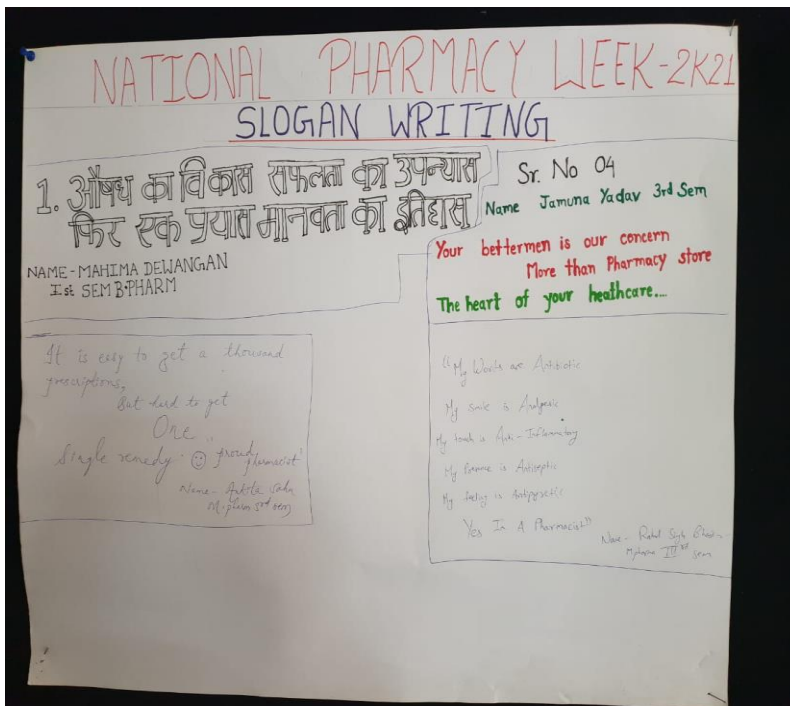 NATIONAL PHARMACY WEEK-2K21
SLOGAN WRITING
1. औषध का विकास सफलता का उपन्यास
फिर एक प्रयास मानवता का इतिहास
NAME - MAHIMA DEWANGAN
Ist SEM B.PHARM
Sr. No 04
Name Jamuna Yadav 3rd Sem
Your bettermen is our concern
More than Pharmacy store
The heart of your heathcare....
It is easy to get a thousand
prescriptions,
But hard to get
One
Single remedy. ☺ proud
pharmacist'
Name - Ankita
M.pharm 3rd sem
"My Words are Antibiotic
My smile is Analgesic
My touch is Anti-Inflammatory
My is Antiseptic
My feeling is Antipyretic
Yes In A Pharmacist"
Name - Rahul
Mpharm IIIrd sem